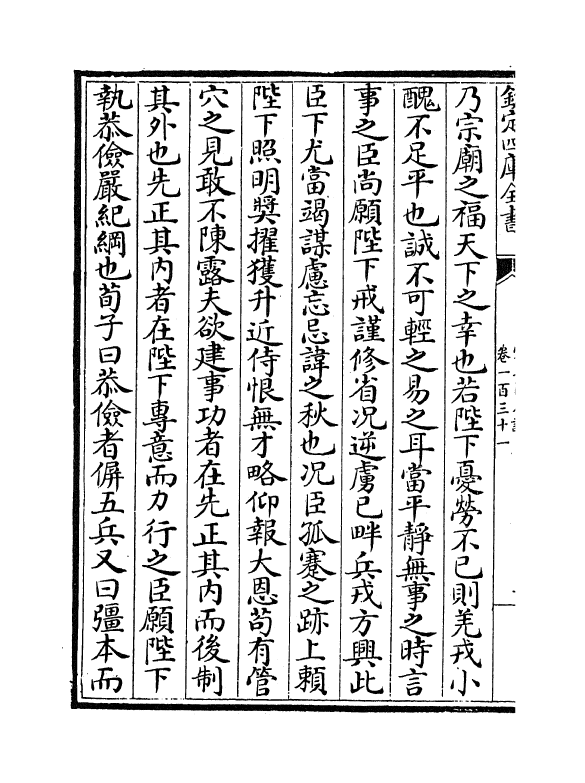 欽定四庫全書
卷一百三十一
乃宗廟之福天下之幸也若陛下憂勞不已則羌戎小
醜不足平也誠不可輕之易之耳當平靜無事之時言
事之臣尚願陛下戒謹修省况逆虜已畔兵戎方興此
臣下尤當竭謀慮忘忌諱之秋也况臣孤蹇之跡上賴
陛下照明奬擢獲升近侍恨無才略仰報大恩苟有管
穴之見敢不陳露夫欲建事功者在先正其内而後制
其外也先正其内者在陛下專意而力行之臣願陛下
執恭儉嚴紀綱也荀子曰恭儉者偋五兵又曰彊本而